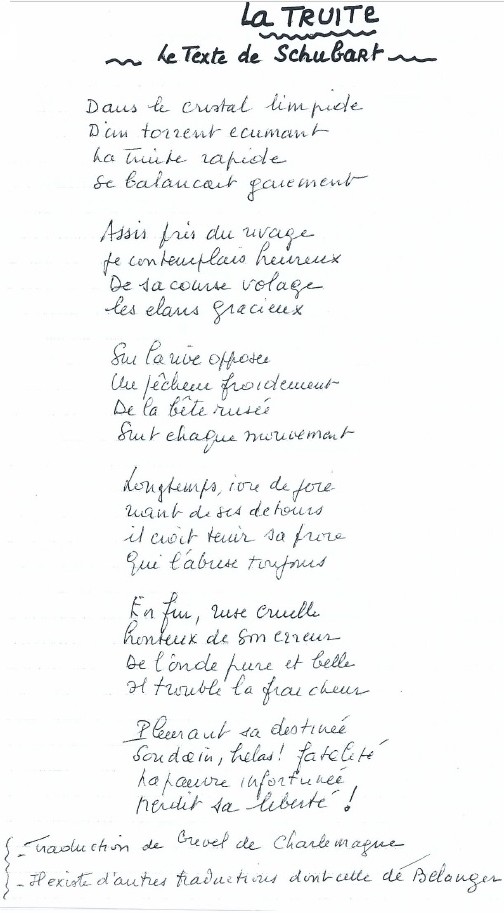 La TRUITE
Le Texte de Schubart
Dans le cristal limpide
D'un torrent ecumant
La Truite rapide
Se balancait gaiement
Assis près du rivage
Je contemplais heureux
De sa course volage
les elans gracieux
Sur la rive opposee
Un pêcheur froidement
De la bête rusée
Suit chaque mouvement
Longtemps, ivre de joie
riant de ses detours
il croit tenir sa proie
Qui l'abuse toujours
En fin, ruse cruelle
honteux de son erreur
De l'onde pure et belle
Il trouble la fraicheur
Pleurant sa destinée
Soudain, helas! fatalité
La pauvre infortunée
Perdit sa liberté !
- Traduction de Crevel de Charlemagne
- Il existe d'autres traductions dont celle de Bélanger